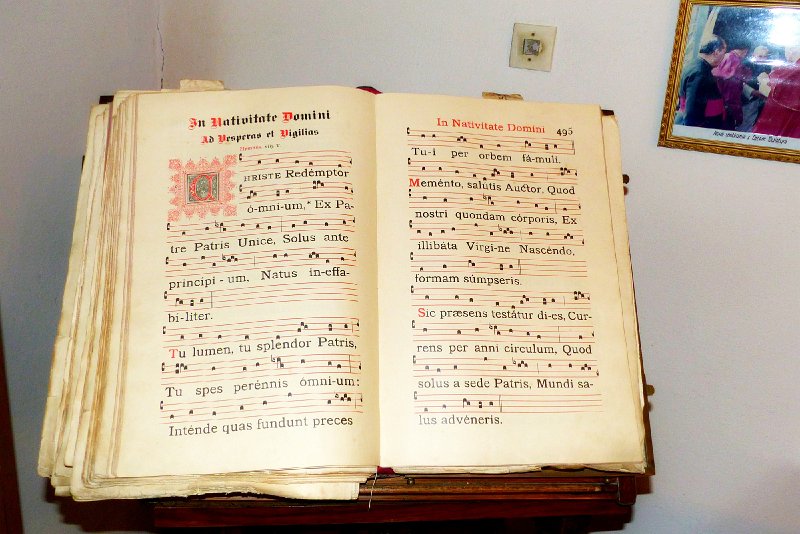 In Nativitate Domini
Ad Vesperas et Vigilias
HRISTE Redémptor
ó-mni-um,* Ex Pa-
tre Patris Unice, Solus ante
principi - um, Natus in-effa-
bi-liter.
Tu lumen, tu splendor Patris,
Tu spes perénnis ómni-um:
Inténde quas fundunt preces
In Nativitate Domini 495
Tu-i per orbem fá-muli.
Meménto, salútis Auctor, Quod
nostri quondam córporis, Ex
illibáta Virgi-ne Nascéndo,
formam súmpseris.
Sic præsens testátur di-es, Cur-
rens per anni círculum, Quod
solus a sede Patris, Mundi sa-
lus advéneris.